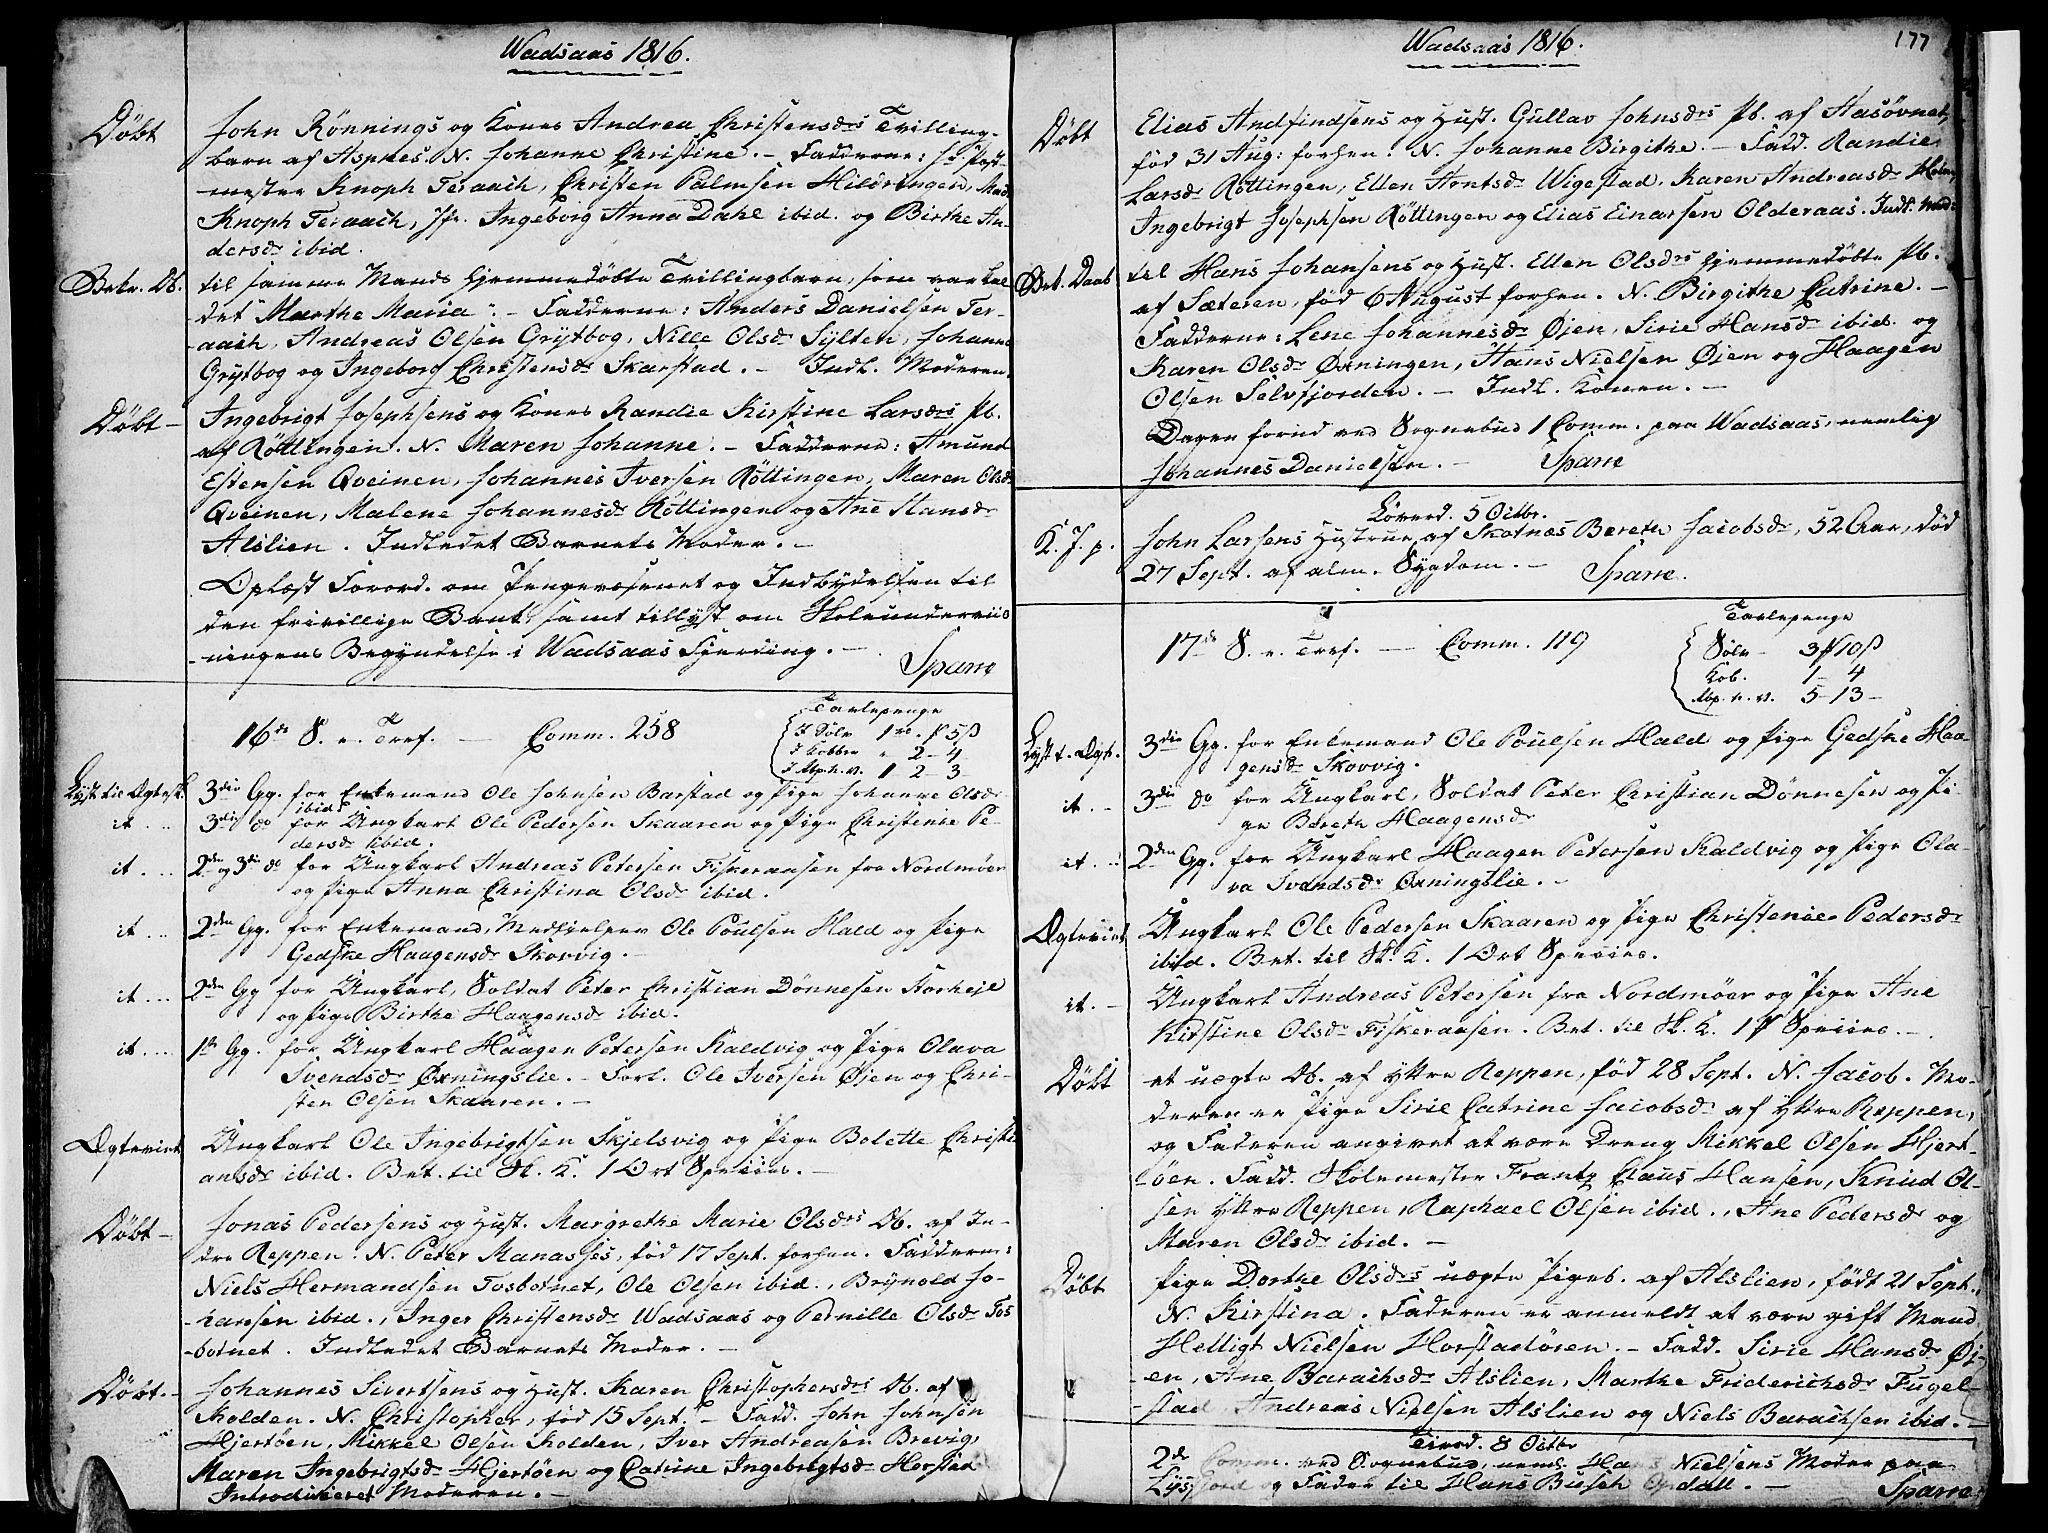 Wadsaas 1816.
Döbt John Rönnings og Kones Andrea Christensdrs Tvilling-
barn af Aspnes. N. Johanne Christine. - Fadderne: Hr. Post-
-mester Knoph Teraach, Christen Palmsen Hildringen, Mad.
Knoph Teraach, Jfr. Ingeborg Anna Dahl ibid. og Birthe An-
dersdr ibid.
Bekr. Db. til samme Mands hjemmedöbte Tvillingbarn, som var kal-
det Marthe Maria. - Fadderne: Anders Danielsen Ter-
-aach, Andreas Olsen Grytbog, Nille Olsdr Sylten, Johanne
Grytbog og Ingeborg Christensdr Skarstad. - Indl. Moderen.
Döbt - Ingebrigt Josephsens og Kones Randie Kirstine Larsdrs Pb.
af Röttingen. N. Maren Johanne. - Fadderne: Amund
Estensen Qveinen, Johannes Iversen Röttingen, Maren Olsdr
Qveinen, Malene Johannesdr Röttingen og Ane Hansdr
Alslien. Indledet Barnets Moder. -
Oplæst Forord. om Pengevæsenet og Indbydelsen til
den frivillige Bank samt tillyst om Skoleunderviis-
-ningens Begyndelse i Wadsaas Fjerding. -
Sparre
16de S. e. Tref. - Comm. 258
Tavlepenge
I Sölv 1 5 ß
I Kobber " 2 - 4
1 2 - 3 -
Lyst til Ægtesk. 3die Gg. for Enkemand Ole Johnsen Barstad og Pige Johanne Olsdr
ibid.
it ... 3die do for Ungkarl Ole Pedersen Skaaren og Pige Christense Pe-
dersdr ibid.
it ... 2den og 3die do for Ungkarl Andreas Petersen Fiskeraasen fra Nordmöer
og Pige Anna Christina Olsdr ibid.
it ... 2den Gg. for Enkemand, Medhjelper Ole Poulsen Hald og Pige
Gedske Haagensdr Skovvig. -
it ... 2den Gg for Ungkarl, Soldat Peter Christian Dönnesen Storheje
og Pige Birthe Haagensdr ibid.
it .... 1te Gg. for Ungkarl Haagen Petersen Kaldvig og Pige Olava
Svendsdr Øxningslie. - Forl. Ole Iversen Øjen og Chri-
sten Olsen Skaaren. -
Ægteviet Ungkarl Ole Ingebrigtsen Skjelsvig og Pige Bolette Christi-
ansdr ibid. Bet. til Sk. K. 1 Ort Species. -
Döbt - Jonas Pedersens og Hust. Margrethe Marie Olsdrs Db. af In-
dre Reppen. N. Peter Manasses, föd 17 Sept. forhen. Fadderne:
Niels Hermandsen Tosbotnet, Ole Olsen ibid., Brynold Jo-
-hansen ibid., Inger Christensdr Wadsaas og Pernille Olsdr Tos
botnet. Indledet Barnets Moder. -
Döbt. - Johannes Sivertsens og Hust. Karen Christophersdrs Db. af
Holden. N. Christopher, föd 15 Sept. - Fadd. John Johnsen
Hjertöen, Mikkel Olsen Holden, Iver Andreasen Brevig,
Maren Ingebrigtsdr Hjertöen og Catrine Ingebrigtsdr Horstad
Introduceret Moderen. -
Wadsaas 1816. 177
Döbt Elias Andfindsens og Hust. Gullav Johnsdrs Pb. af Aasövnet,
föd 31 Aug: forhen. N. Johanne Birgithe. - Fadd. Randie
Larsdr Röttingen, Ellen Arntsdr Wigestad, Karen Andreasdr Holm,
Ingebrigt Josephsen Röttingen og Elias Einarsen Olderaas. Indl. Mod:
Bek. Daab til Hans Johansens og Hust. Ellen Olsdrs hjemmedöbte Pb.
af Sæteren, föd 6 August forhen. N. Birgithe Catrine. -
Fadderne: Lene Johannesdr Øjen, Sirie Hansdr ibid. og
Karen Olsdr Øxningen, Hans Nielsen Øjen og Haagen
Olsen Selvfjorden. - Indl. Konen. -
Dagen forud ved Sognebud 1 Comm. paa Wadsaas, nemlig
Johannes Danielsen. - Sparre
Löverd. 5 Octbr.
K. J. p. John Larsens Hustrue af Skotnæs Bereth Jacobsdr, 52 Aar, död
27 Sept. af alm. Sygdom. - Sparre.
17de S. e. Tref. - Comm. 119
Tavlepenge
Sölv - 3 10 ß
Kob. 1 - 4
5 - 13 -
Lyst t. Ægt. 3die Gg. for Enkemand Ole Poulsen Hald og Pige Gedske Haa-
gensdr Skovvig.
it. - 3die do for Ungkarl, Soldat Peter Christian Dönnesen og Pi-
ge Bereth Haagensdr
it. .. 2den Gg. for Ungkarl Haagen Petersen Kaldvig og Pige Ola-
va Svendsdr Øxningslie. -
Ægteviet Ungkarl Ole Pedersen Skaaren og Pige Christense Pedersdr
ibid. Bet. til Sk. K. 1 Ort Species.
it. - Ungkarl Andreas Petersen fra Nordmöer og Pige Ane
Kirstine Olsdr Fiskeraasen. Bet. til Sk. K. 1 Species. -
Döbt et uægte Db. af yttre Reppen, föd 28 Sept. N. Jacob. Mo-
deren er Pige Sirie Catrine Jacobsdr af yttre Reppen,
og Faderen angivet at være Dreng Mikkel Olsen Hjert-
-öen. Fadd. Skolemester Frantz Claus Hansen, Knud Ol-
sen yttre Reppen, Raphael Olsen ibid., Ane Pedersdr og
Maren Olsdr ibid. -
Döbt Pige Dorthe Olsdrs uægte Pigeb. af Alslien, födt 21 Sept.,
N. Kirstina. Faderen er anmeldt at være gift Mand
Helligt Nielsen Horstadören. - Fadd. Sirie Hansdr Øj-
-en, Ane Barachsdr Alslien, Marthe Friderichsdr Fugel-
stad, Andreas Nielsen Alslien og Niels Barachsen ibid. -
Tirsd. 8 Octbr
2de Comm. ved Sognebud, neml. Hans Nielsens Moder paa
Lysfjord og Fader til Hans Busch Opdall. - Sparre